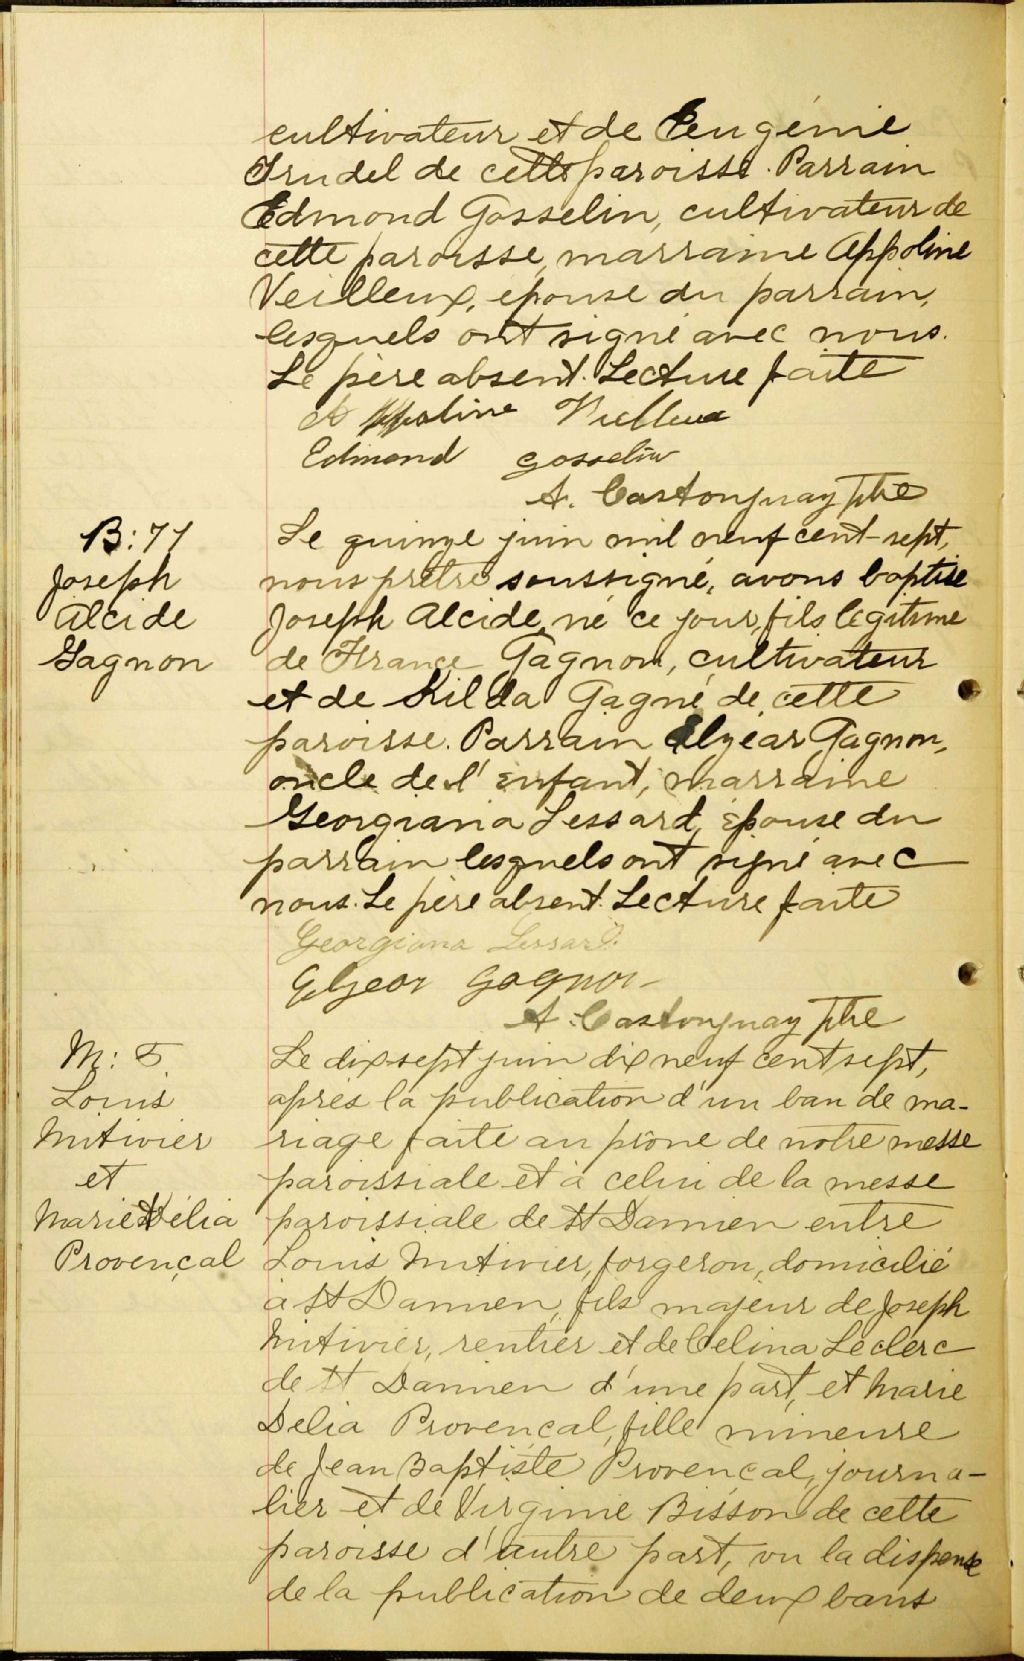 cultivateur et de Eugénie
Trudel de cette paroisse. Parrain
Edmond Gosselin, cultivateur de
cette paroisse, marraine Appoline
Veilleux, épouse du parrain,
lesquels ont signé avec nous.
Le père absent. Lecture faite
Appoline Vielleux
Edmond Gosselin
A. Castonguay Ptre
B: 71
Joseph
Alcide
Gagnon
Le quinze juin mil neuf cent-sept,
nous prêtre soussigné, avons baptisé
Joseph Alcide, né ce jour, fils légitime
de France Gagnon, cultivateur
et de Kilda Gagné de cette
paroisse. Parrain Elzéar Gagnon,
oncle de l'enfant, marraine
Georgiana Lessard, épouse du
parrain lesquels ont signé avec
nous. Le père absent. Lecture faite
Georgiana Lessard.
Elzear Gagnon
A. Castonguay Ptre
M: 5.
Louis
Mitivier
et
Marie Délia
Provençal
Le dix sept juin dix neuf cent sept,
après la publication d'un ban de ma-
riage faite au prône de notre messe
paroissiale et à celui de la messe
paroissiale de St Damien entre
Louis Mitivier, forgeron, domicilié
à St Damien, fils majeur de Joseph
Mitivier, rentier et de Celina Leclerc
de St Damien d'une part, et Marie
Delia Provençal, fille mineure
de Jean Baptiste Provençal, journa-
lier et de Virginie Bisson de cette
paroisse d'autre part, vu la dispense
de la publication de deux bans